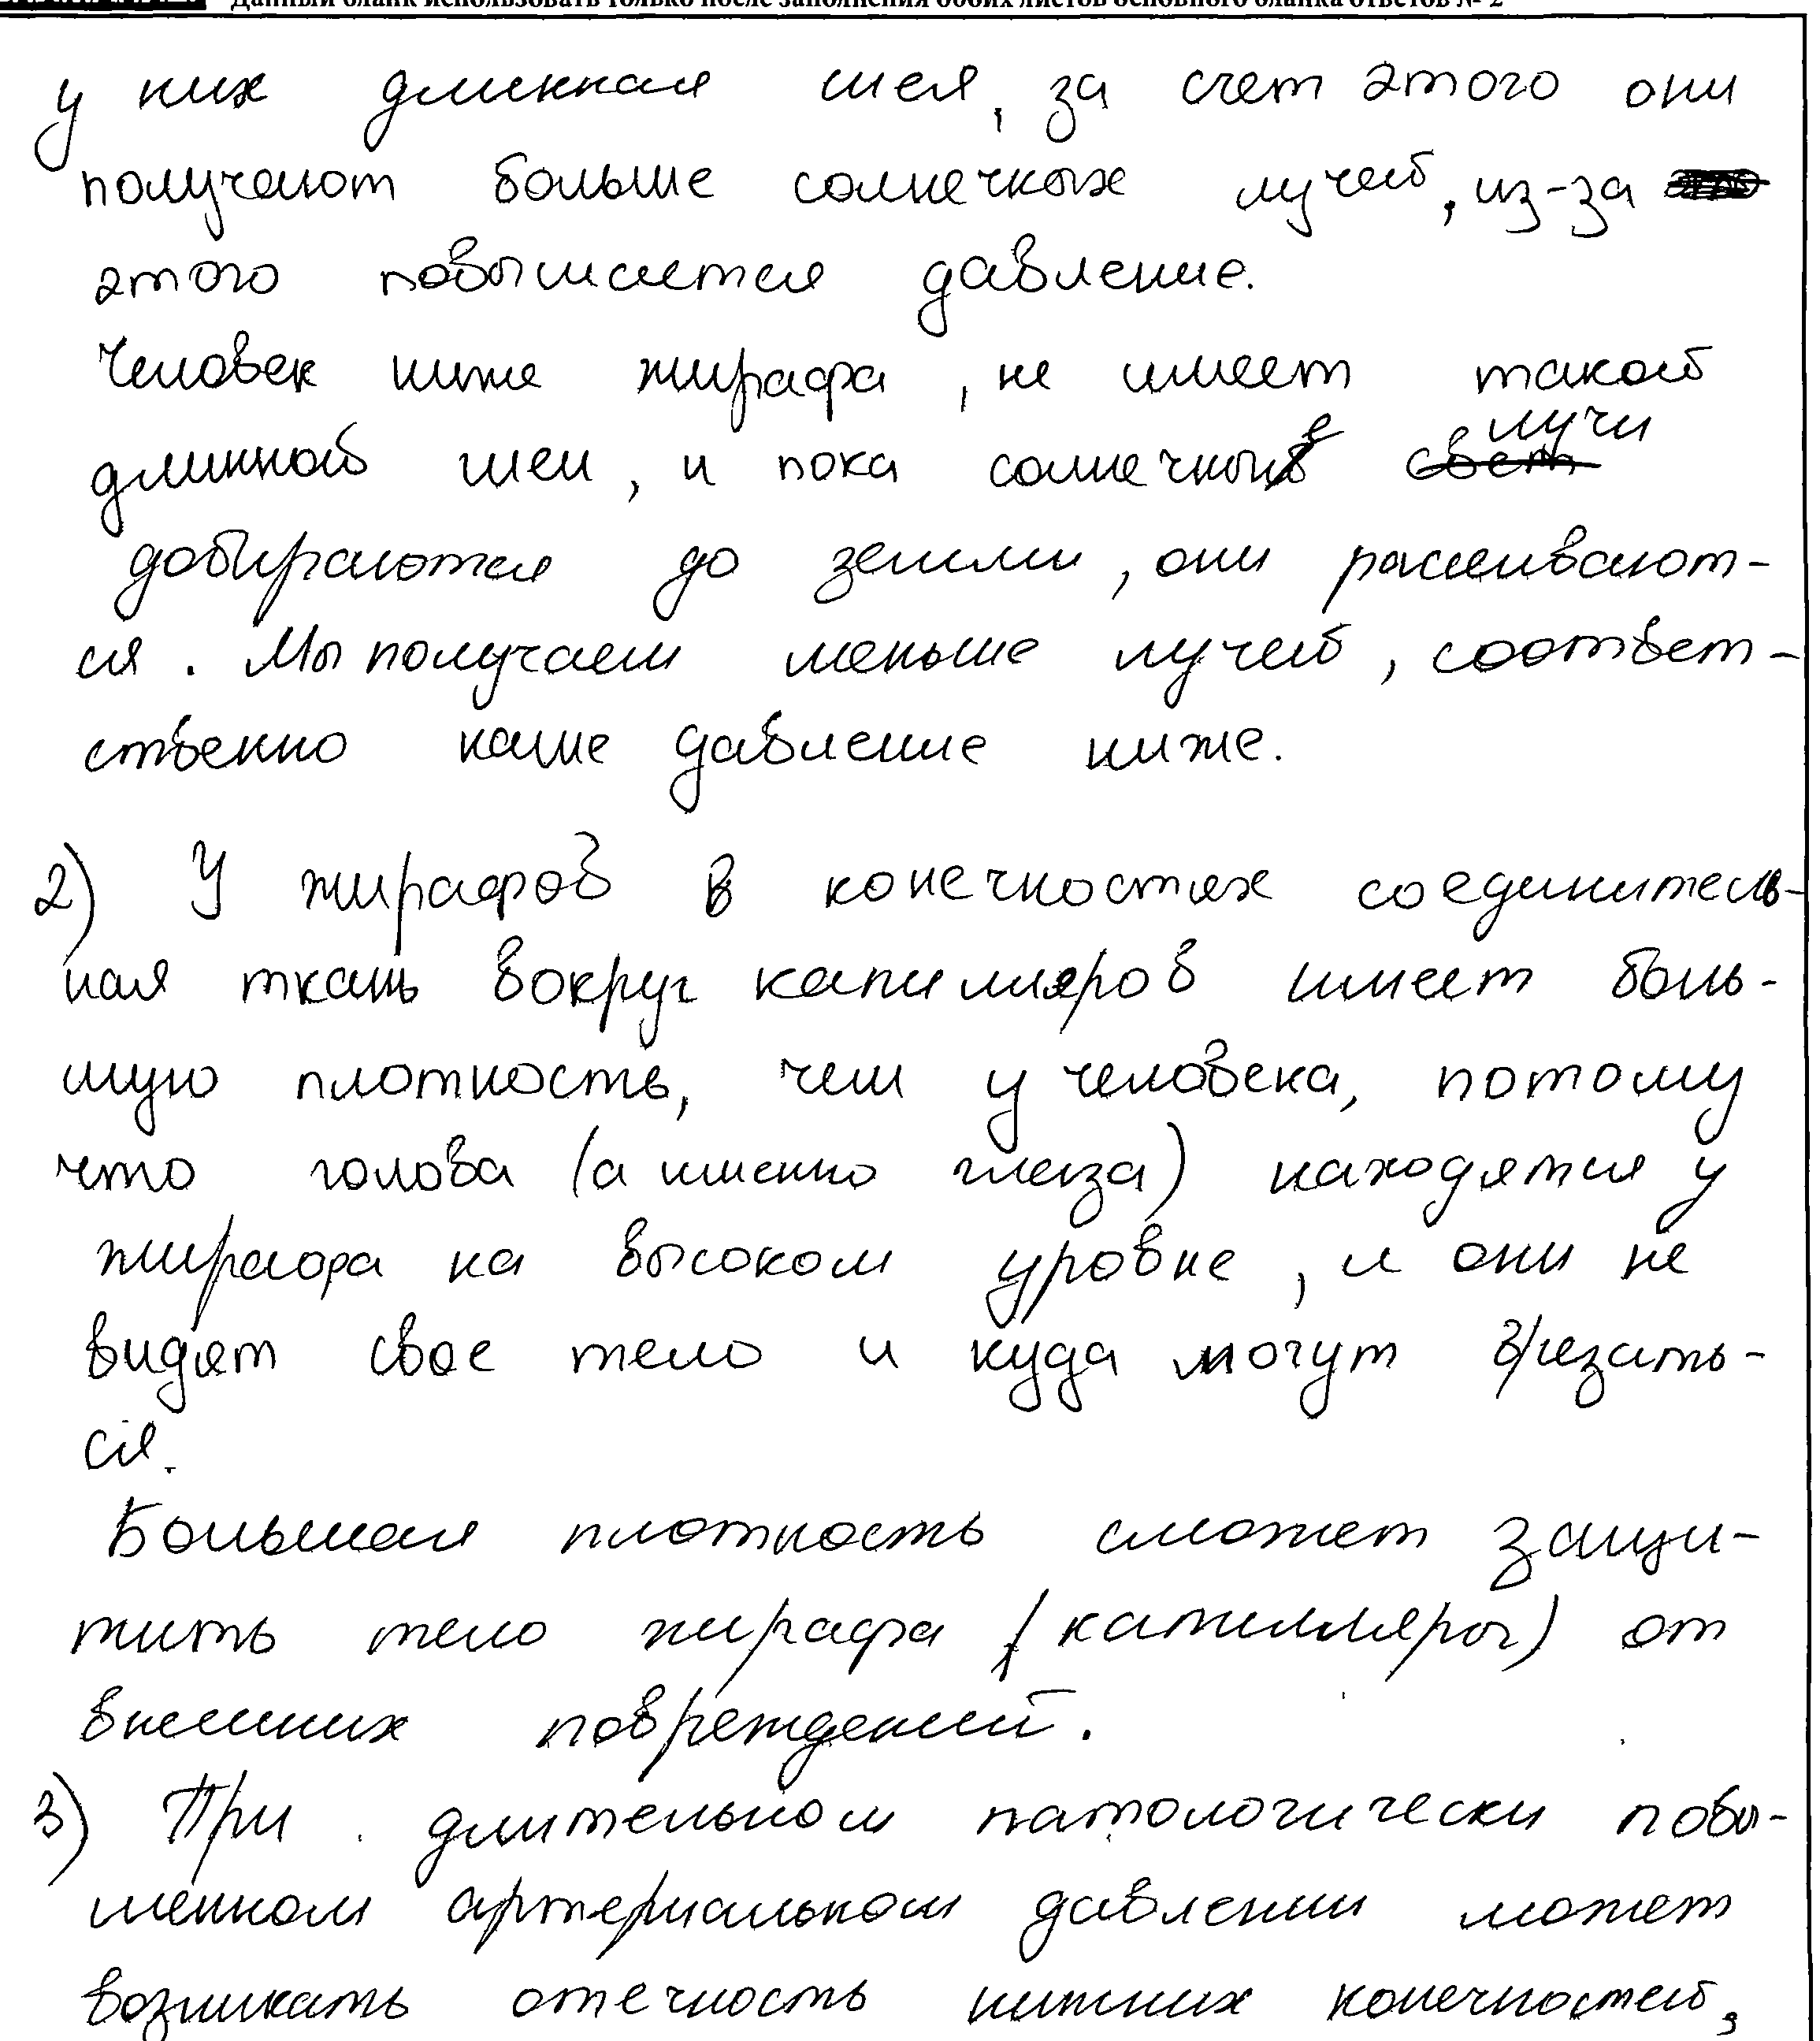 Данный бланк использовать только после заполнения обоих листов основного бланка ответов № 2
у них длинная шея, за счет этого они
получают больше солнечных лучей, из-за
этого повышается давление.
Человек ниже жирафа, не имеет такой
длинной шеи, и пока солнечные лучи
добираются до земли, они рассеивают-
ся. Мы получаем меньше лучей, соответ-
ственно наше давление ниже.
2) У жирафов в конечностях соединитель-
ная ткань вокруг капилляров имеет боль-
шую плотность, чем у человека, потому
что голова (а именно глаза) находятся у
жирафа на высоком уровне, и они не
видят свое тело и куда могут врезать-
ся.
Большая плотность сможет защи-
тить тело жирафа (капилляры) от
внешних повреждений.
3) При длительном патологически повы-
шенном артериальном давлении может
возникать отечность нижних конечностей,